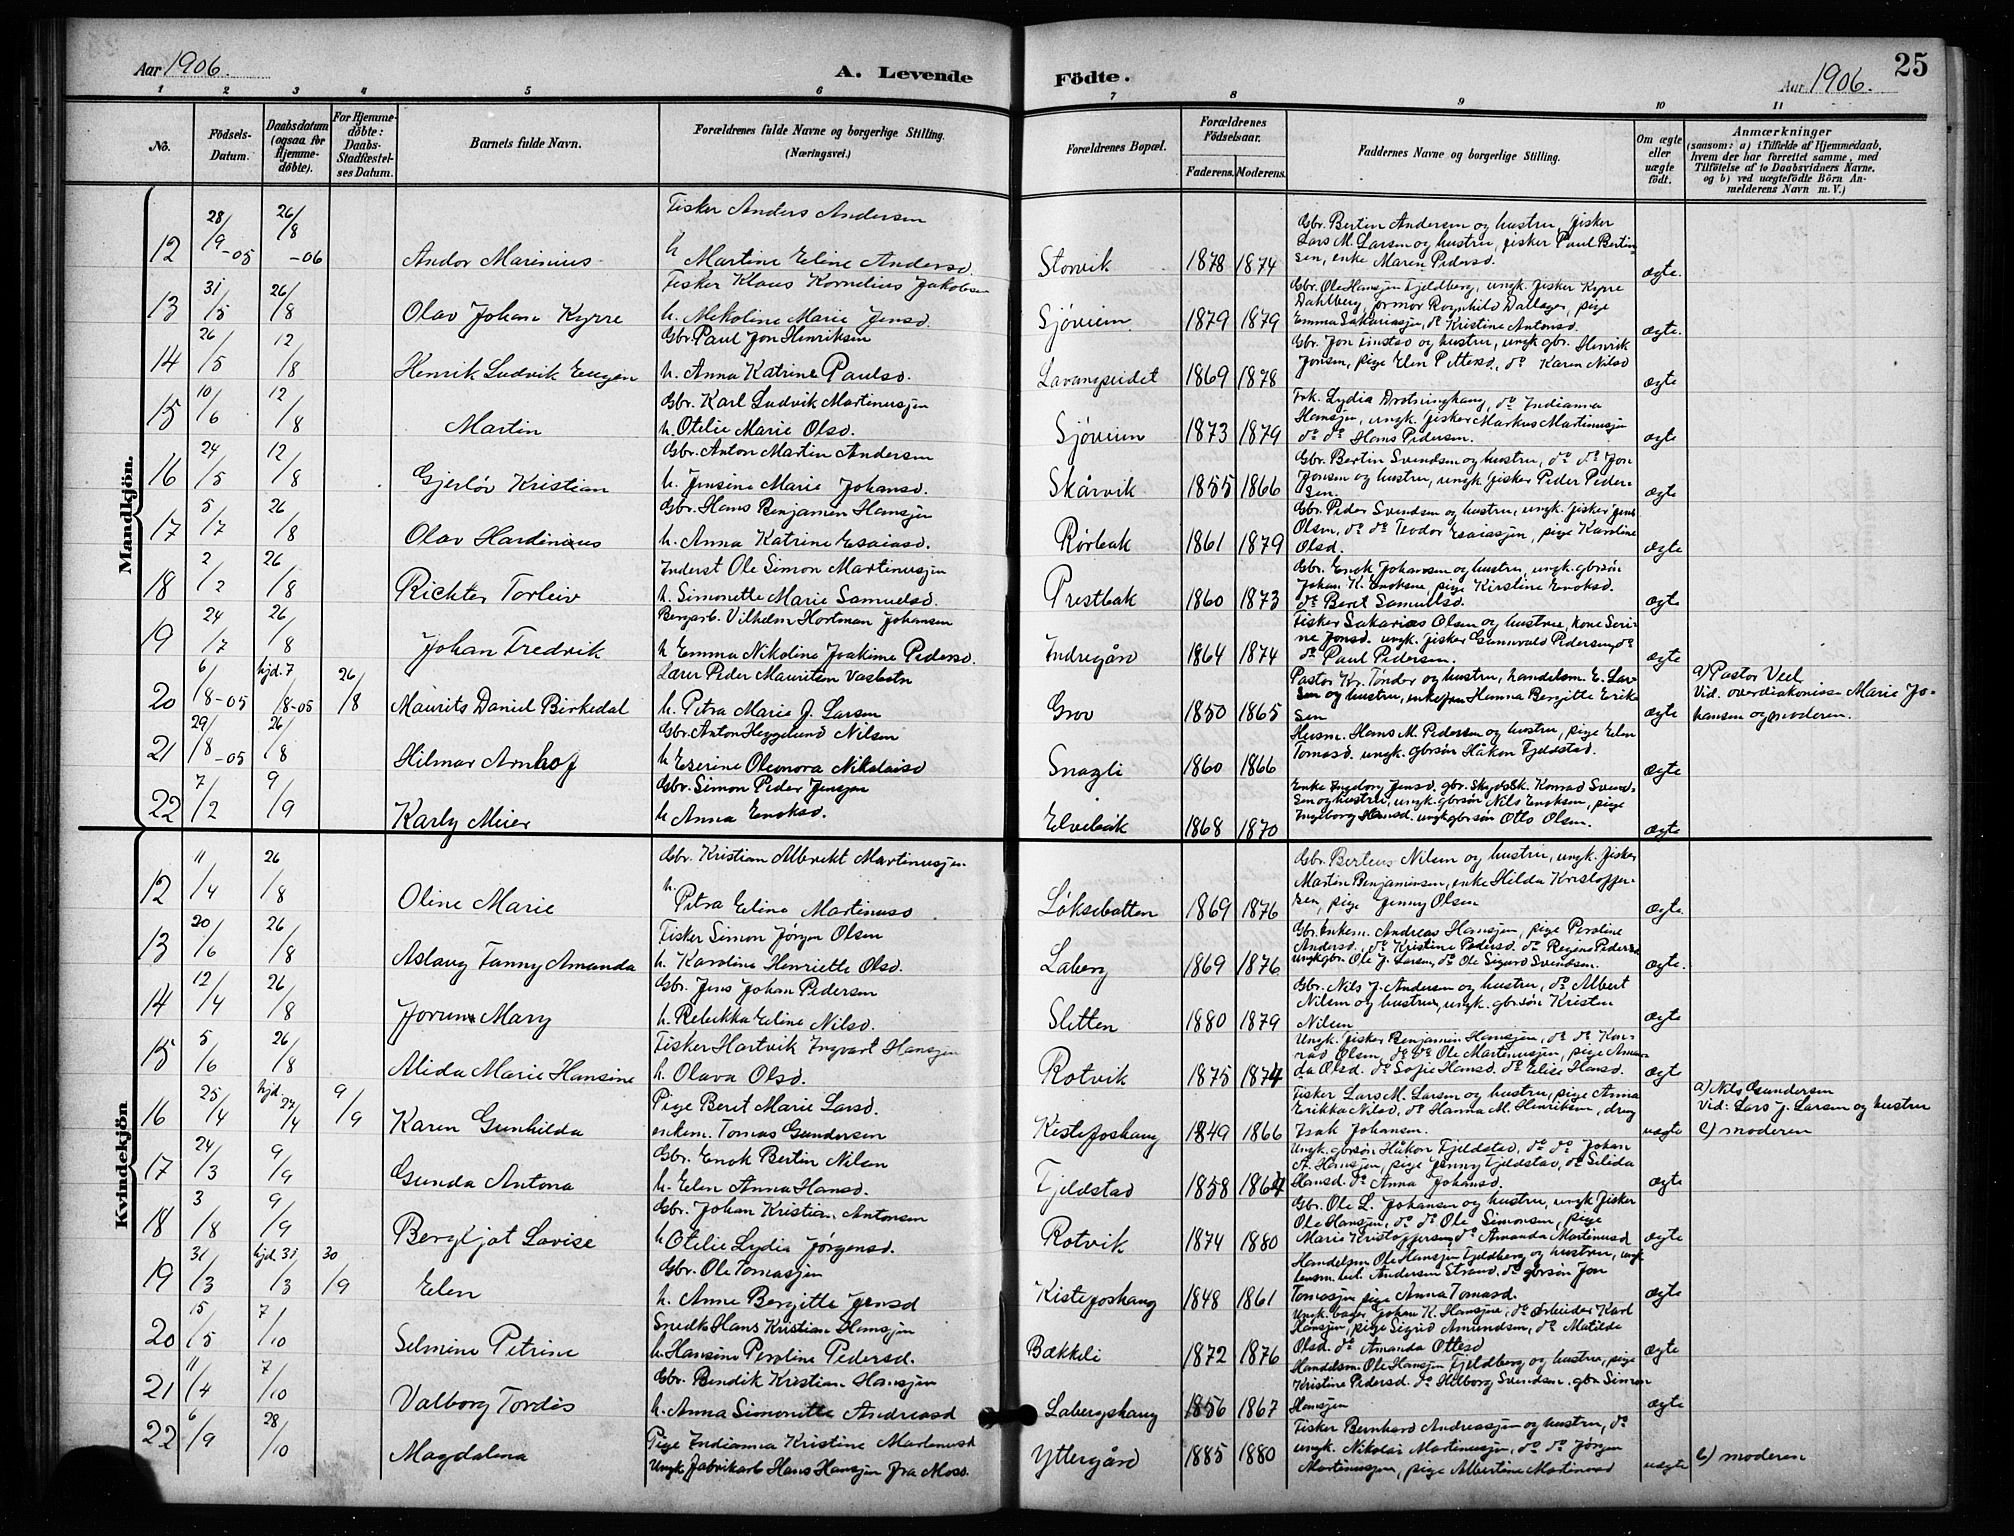 Aar 1906.
A. Levende Födte.
Aar 1906.
25
1 2 3 4 5 6 7 8 9 10 11
No.
Födsels-Datum.
Daabsdatum (ogsaa for Hjemmedöbte).
For Hjemmedöbte: Daabs-Stadfæstelses Datum.
Barnets fulde Navn.
Forældrenes fulde Navne og borgerlige Stilling. (Næringsvei.)
Forældrenes Bopæl.
Forældrenes Födselsaar.
Faderens. Moderens.
Faddernes Navne og borgerlige Stilling.
Om ægte eller uægte født.
Anmærkninger
(saasom: a) i Tilfælde af Hjemmedaab, hvem der har forrettet samme, med Tilföielse af to Daabsvidners Navne, og b) ved uægtefödte Börn Anmelderens Navn m. V.)
Mandkjön.
12 28/9-05 26/8-06 Andor Marinius Fisker Anders Andersen
h Martine Eline Andersd. Storvik 1878 1874 Gbr. Bertin Andersen og hustru, fisker
Lars M. Larsen og hustru, fisker Paul Bertin-
sen, enke Maren Pedersd. ægte.
13 31/5 26/8 Olav Johan Kyrre Fisker Klaus Kornelius Jakobsen
h. Nikoline Marie Jensd. Sjøveien 1879 1879 Gbr. Ole Hansjen Fjeldberg, ungk. fisker Kyrre
Dahlberg, jormor Ragnhild Dallager, pige
Emma Sakariassjn, do Kristine Antonsd. ægte.
14 26/5 12/8 Henrik Ludvik Eugen Gbr. Paul Jon Henriksen
h. Anna Katrine Paulsd. Lavangseidet 1869 1878 Gbr. Jon Finstad og hustru, ungk. gbr. Henrik
Jonsen, pige Elen Pettersd, do Karen Nilsd ægte
15 10/6 12/8 Martin Gbr. Karl Ludvik Martinussjen
h. Otelie Marie Olsd. Sjøveien 1873 1879 Frk. Lydia Drotninghaug, do Indianna
Hansjen, ungk. fisker Markus Martinussjen
do do Hans Pedersen. ægte
16 24/5 12/8 Gjerløv Kristian Gbr. Anton Martin Andersen
h. Jensine Marie Johansd. Skårvik 1855 1866 Gbr. Bertin Svendsen og hustru, do do Jon
Jonsen og hustru, ungk fisker Peder Peder-
sen. ægte
17 5/7 26/8 Olav Hardinius Gbr. Hans Benjamin Hansjen
h. Anna Katrine Esaiasd. Rørbak 1861 1879 Gbr. Peder Svendsen og hustru, ungk. fisker Jens
Olsen, do do Teodor Esaiassjen, pige Karoline
Olsd. ægte
18 2/2 26/8 Richter Torleiv Inderst Ole Simon Martinussjen
h. Simonette Marie Samuelsd. Prestbak 1860 1873 Gbr. Enok Johansen og hustru, ungk. gbrsøn
Johan K. Enoksen, pige Kirstine Enoksd.
do Beret Samuelsd. ægte
19 24/7 26/8 Johan Fredrik Bergarb. Vilhelm Hartman Johansen
h Emma Nikoline Joakime Pedersd. Indregård 1864 1874 Fisker Sakarias Olsen og hustru, kone Seri-
ne Jonsd. ungk. fisker Gunnvald Pedersen, do
do Paul Pedersen. ægte
20 6/8-05 hjd. 7/8-05 26/8 Maurits Daniel Birkedal Lærer Peder Mauritsen Vasbotn
h. Petra Marie J. Larsen Grov 1850 1865 Pastor Kr. Tønder og hustru, handelsm. E. Lar-
sen og hustru, enkefru Hanna Bergitte Erik-
sen ægte a) Pastor Veel
Vid. overdiakonisse Marie Jo-
hansen og moderen.
21 29/8-05 26/8 Hilmar Arnhof Gbr. Anton Heggelund Nilsen
h Eserine Oleonora Nikolaisd Snøgli 1860 1866 Husm. Hans M. Pedersen og hustru, pige Elen
Tomasd. ungk. gbrsøn Håkon Fjeldstad. ægte
22 7/2 9/9 Karly Meier Gbr. Simon Peder Jensjen
h Anna Enoksd. Elvebak 1868 1870 Enke Ingeborg Jensd. gbr. Skydssk. Konrad Svend-
sen og hustru, ungk. gbrsøn Nils Enoksen, pige
Ingeborg Hansd. ungk gbrsøn Otto Olsen. ægte
Kvindekjön
12 11/4 26/8 Oline Marie Gbr. Kristian Albrekt Martinussjen
h. Petra Eline Martinusd. Løksebotten 1869 1876 Gbr. Berteus Nilsen og hustru, ungk. fisker
Martin Benjaminsen, enke Hilda Kristoffer-
sen, pige Jenny Olsen ægte
13 20/6 26/8 Aslaug Fanny Amanda Fisker Simon Jørgen Olsen
h. Karoline Henriette Olsd. Laberg 1869 1876 Gbr. Enkem. Andreas Hansjen, pige Peroline
Andersd. do Kristine Pedersd. do Regine Pedersd
ungk gbr. Ole J. Larsen, do Ole Sigurd Svendsen. ægte.
14 12/4 26/8 Jorunn Mary Gbr. Jens Johan Pedersen
h. Rebekka Eline Nilsd. Sletten 1880 1879 Gbr. Nils J. Andersen og hustru, do Albert
Nilsen og hustru, ungk. gbrsøn Kristen
Nilsen ægte
15 5/6 26/8 Alida Marie Hansine Fisker Hartvik Ingvart Hansjen
h. Olava Olsd. Rotvik 1875 1874 Ungk. fisker Benjamin Hansjen, do do Kon-
rad Olsen, do do Ole Martinussjen, pige Aman-
da Olsd. do Sofie Hansd. do Elise Hansd. ægt
16 25/4 hjd. 27/4 9/9 Karen Gunhilda Pige Beret Marie Larsd.
enkem. Tomas Gundersen Kistefoshaug 1849 1866 Fisker Lars M. Larsen og hustru, pige Anna
Erikka Nilsd, do Hanna M. Henriksen, dreng
Isak Johansen. uægte a) Nils Gundersen
Vid: Lars J. Larsen og hustru
c) moderen
17 24/3 9/9 Gunda Antona Gbr. Enok Bertin Nilsen
h. Elen Anna Hansd. Fjeldstad 1858 1864 Ungk. gbrsøn Håkon Fjeldstad, do do Johan
A. Hansjen, pige Jenny Fjeldstad, do Selida
Hansd. do Anna Johansd. ægte
18 3/8 9/9 Bergljot Lovise Gbr. Johan Kristian Antonsen
h Otelie Lydia Jørgensd. Rotvik 1874 1880 Gbr. Ole L. Johansen og hustru, ungk fisker
Ole Hansjen, do do Ole Simonsen, pige
Marie Kristoffersen, do Amanda Martinusd ægte
19 31/3 hjd. 31/3 30/9 Elen Gbr. Ole Tomassjen
h. Anne Bergitte Jensd Kistefoshaug 1848 1861 Handelsm Ole Hansjen Fjeldberg og hustru, ungk
lensm. bet. Andersen Strand, do gbrsøn Jon
Tomassjen pige Anna Tomasd. ægte
20 15/5 7/10 Selmine Petrine Snedk Hans Kristian Hansjen
h. Hansine Peroline Pedersd. Bækkeli 1872 1876 Ungk. bager Johan K. Hansjen, do arbeider Karl
Hansjen, pige Sigrid Amundsen, do Matilde
Olsd. do Amanda Ottesd ægte
21 11/4 7/10 Valborg Tordis Gbr. Bendik Kristian Hansjen
h. Anna Simonette Andreasd Labergshaug 1856 1867 Handelsm. Ole Hansjen Fjeldberg og hustru, pige
Kristine Pedersd. do Hilborg Svendsen, gbr. Simon
Hansjen ægte
22 6/9 28/10 Magdalena Pige Indianna Kristine Martinusd
Ungk fabrikarb Hans Hansjen fra Moss. Yttergård 1885 1880 Fisker Bernhard Andreassjen og hustru, do
ungk. Nikolai Martinussjen, do do Jørgen
Martinussjen, pige Albertine Martinusd uægte b) moderen